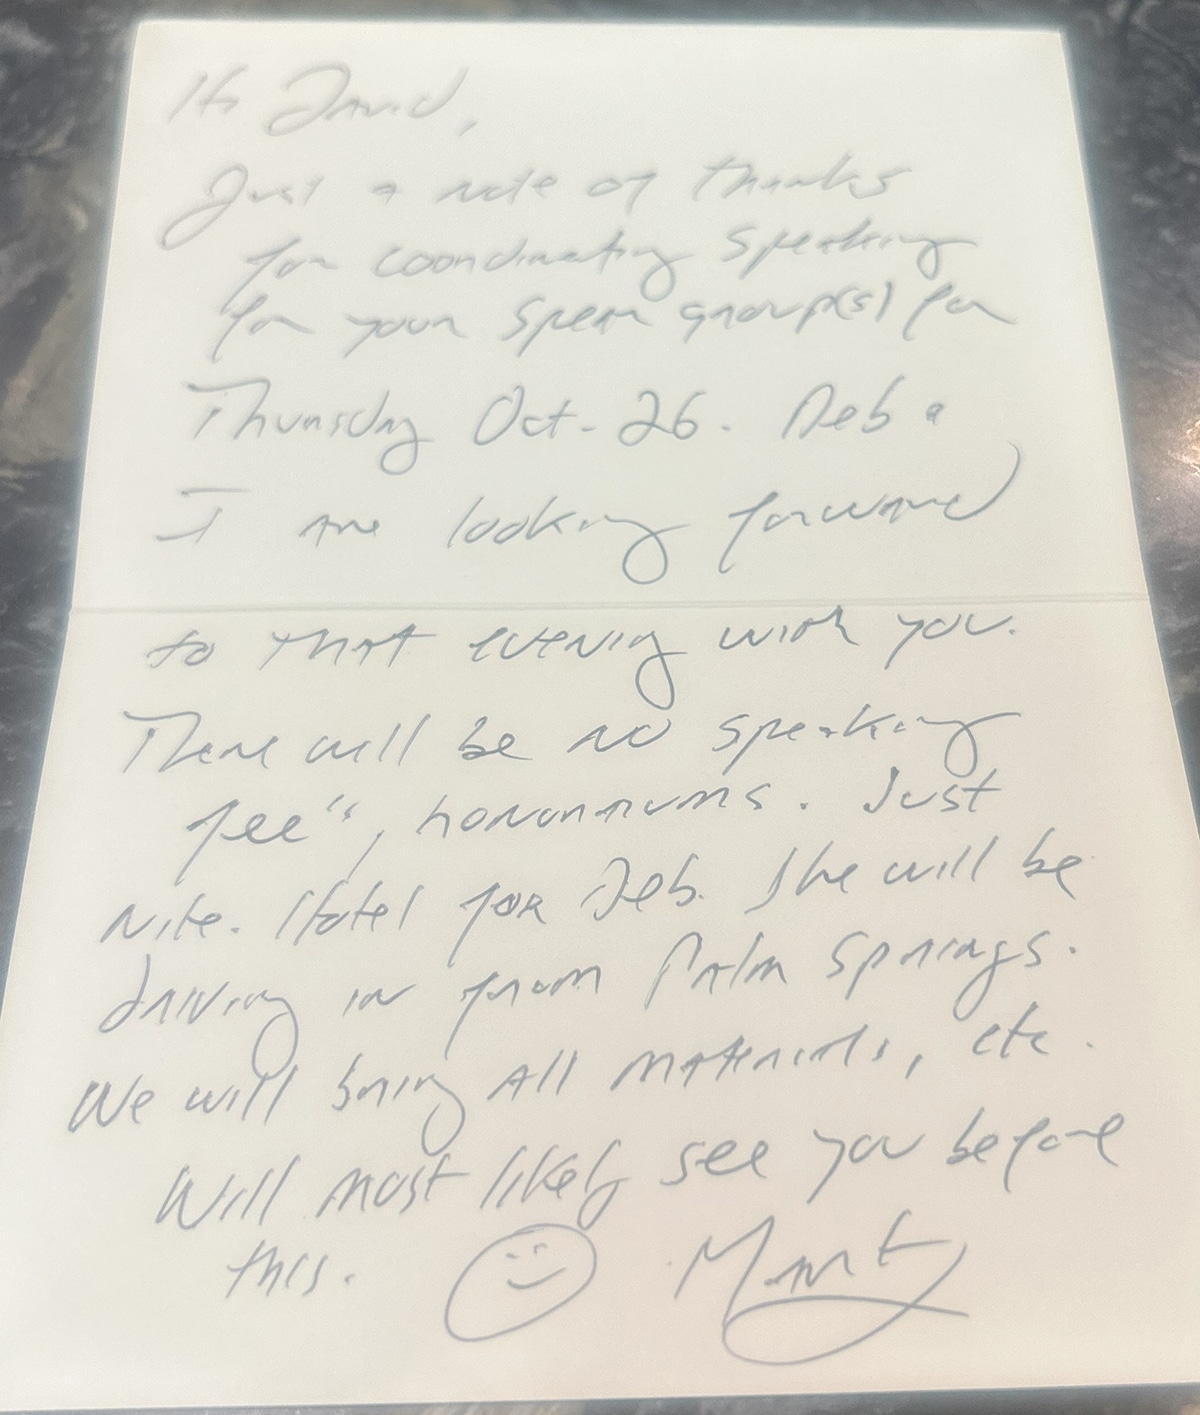 Hi David,
Just a note of thanks
for coordinating speaking
for your spear group(s) for
Thursday Oct. 26. Deb &
I are looking forward
to that evening with you.
There will be no speaking
fee's, honorariums. Just
Nite. Hotel for Deb. She will be
driving in from Palm Springs.
We will bring all materials, etc.
Will most likely see you before
this. Marty